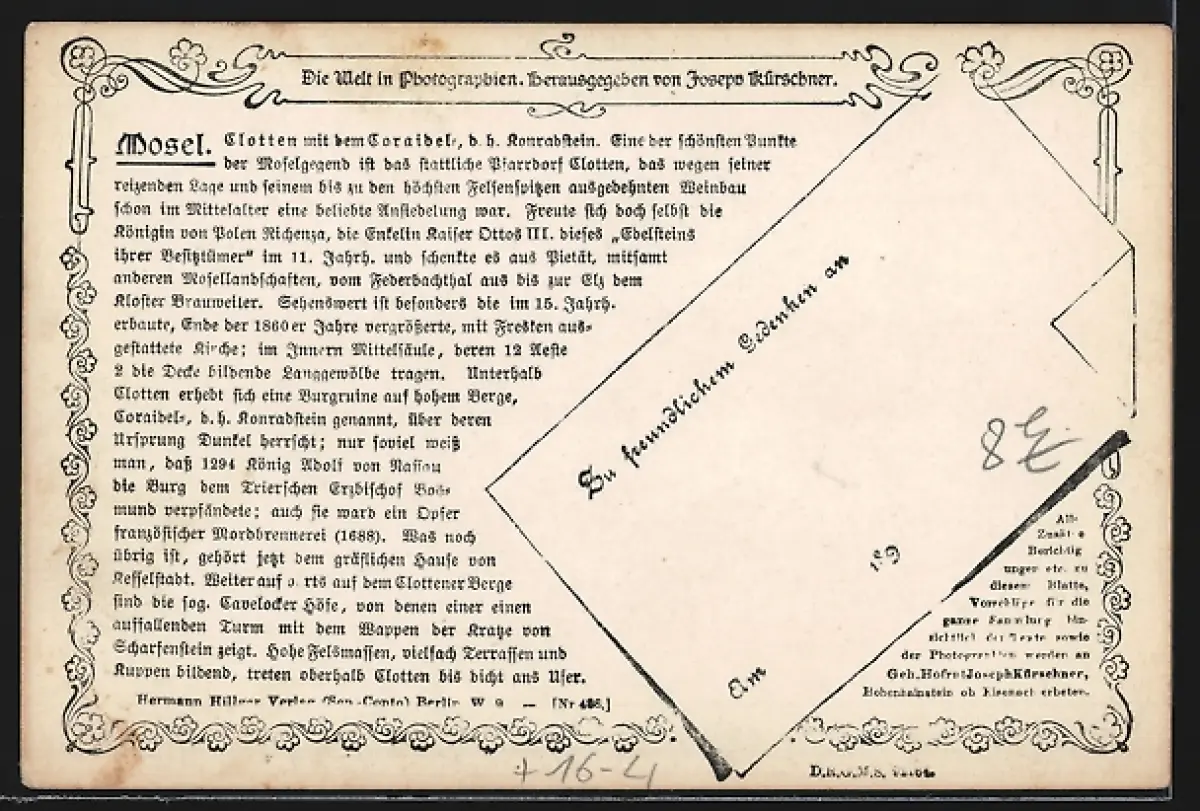 Die Welt in Photographien. Herausgegeben von Joseph Kürschner.
Mosel. Clotten mit dem Coraidel-, d. h. Konradstein. Eine der schönsten Punkte
der Moselgegend ist das stattliche Pfarrdorf Clotten, das wegen seiner
reizenden Lage und seinem bis zu den höchsten Felsenspitzen ausgedehnten Weinbau
schon im Mittelalter eine beliebte Ansiedelung war. Freute sich doch selbst die
Königin von Polen Richenza, die Enkelin Kaiser Ottos III. dieses „Edelsteins
ihrer Besitztümer" im 11. Jahrh. und schenkte es aus Pietät, mitsamt
anderen Mosellandschaften, vom Federbachthal aus bis zur Elz dem
Kloster Brauweiler. Sehenswert ist besonders die im 15. Jahrh.
erbaute, Ende der 1860er Jahre vergrößerte, mit Fresken aus-
gestattete Kirche; im Innern Mittelsäule, deren 12 Aeste
2 die Decke bildende Langgewölbe tragen. Unterhalb
Clotten erhebt sich eine Burgruine auf hohem Berge,
Coraidel-, d. h. Konradstein genannt, über deren
Ursprung Dunkel herrscht; nur soviel weiß
man, daß 1294 König Adolf von Nassau
die Burg dem Trierschen Erzbischof Boe-
mund verpfändete; auch sie ward ein Opfer
französischer Mordbrennerei (1688). Was noch
übrig ist, gehört jetzt dem gräflichen Hause von
Kesselstadt. Weiter auf auf dem Clottener Berge
sind die sog. Cavelocker Höfe, von denen einer einen
auffallenden Turm mit dem Wappen der Kratze von
Scharfenstein zeigt. Hohe Felsmassen, vielfach Terrassen und
Kuppen bildend, treten oberhalb Clotten bis dicht ans Ufer.
Hermann Hillger Verlag Berlin W 9 — [Nr 486.]
Zu freundlichem Gedenken an
Am
189
8
+ 16-4
All-
Zusätze
Berichtig
ungen etc. zu
diesem Blatte,
Vorschläge für die
ganze Sammlung hin-
sichtlich der Texte sowie
der Photographien werden an
Geh. Hofrat Joseph Kürschner,
Hohenhainstein ob Eisenach erbeten.
D.R.G.M.S.